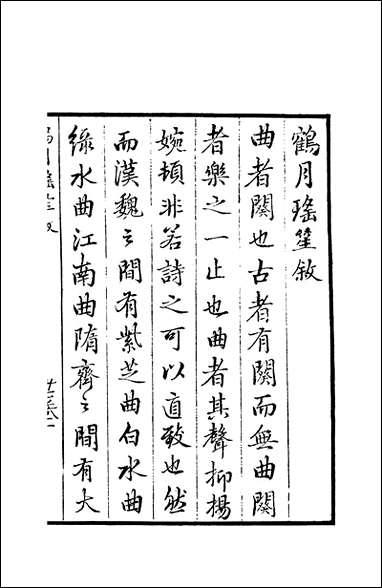 鶴月瑤笙敘
曲者闋也古者有闋而無曲闋
者樂之一止也曲者其聲抑揚
婉頓非若詩之可以直致也然
而漢魏之間有紫芝曲白水曲
綠水曲江南曲隋齊之間有大
月瑤笙敘